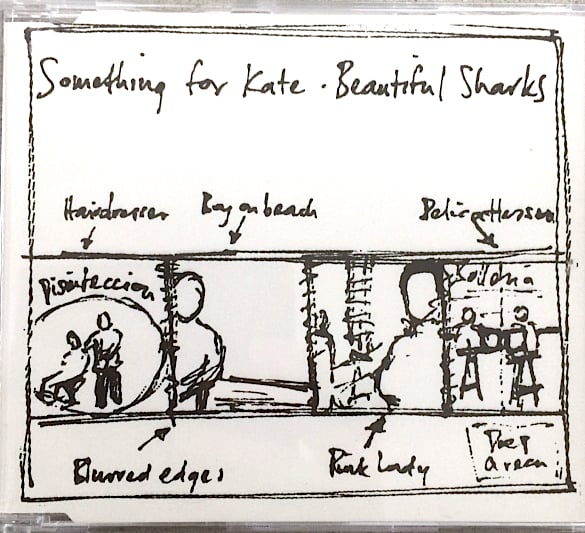 Something for Kate . Beautiful Sharks
Hairdresser
Boy on beach
Disinfeccion
Blurred edges
Pink Lady
Deep
Green